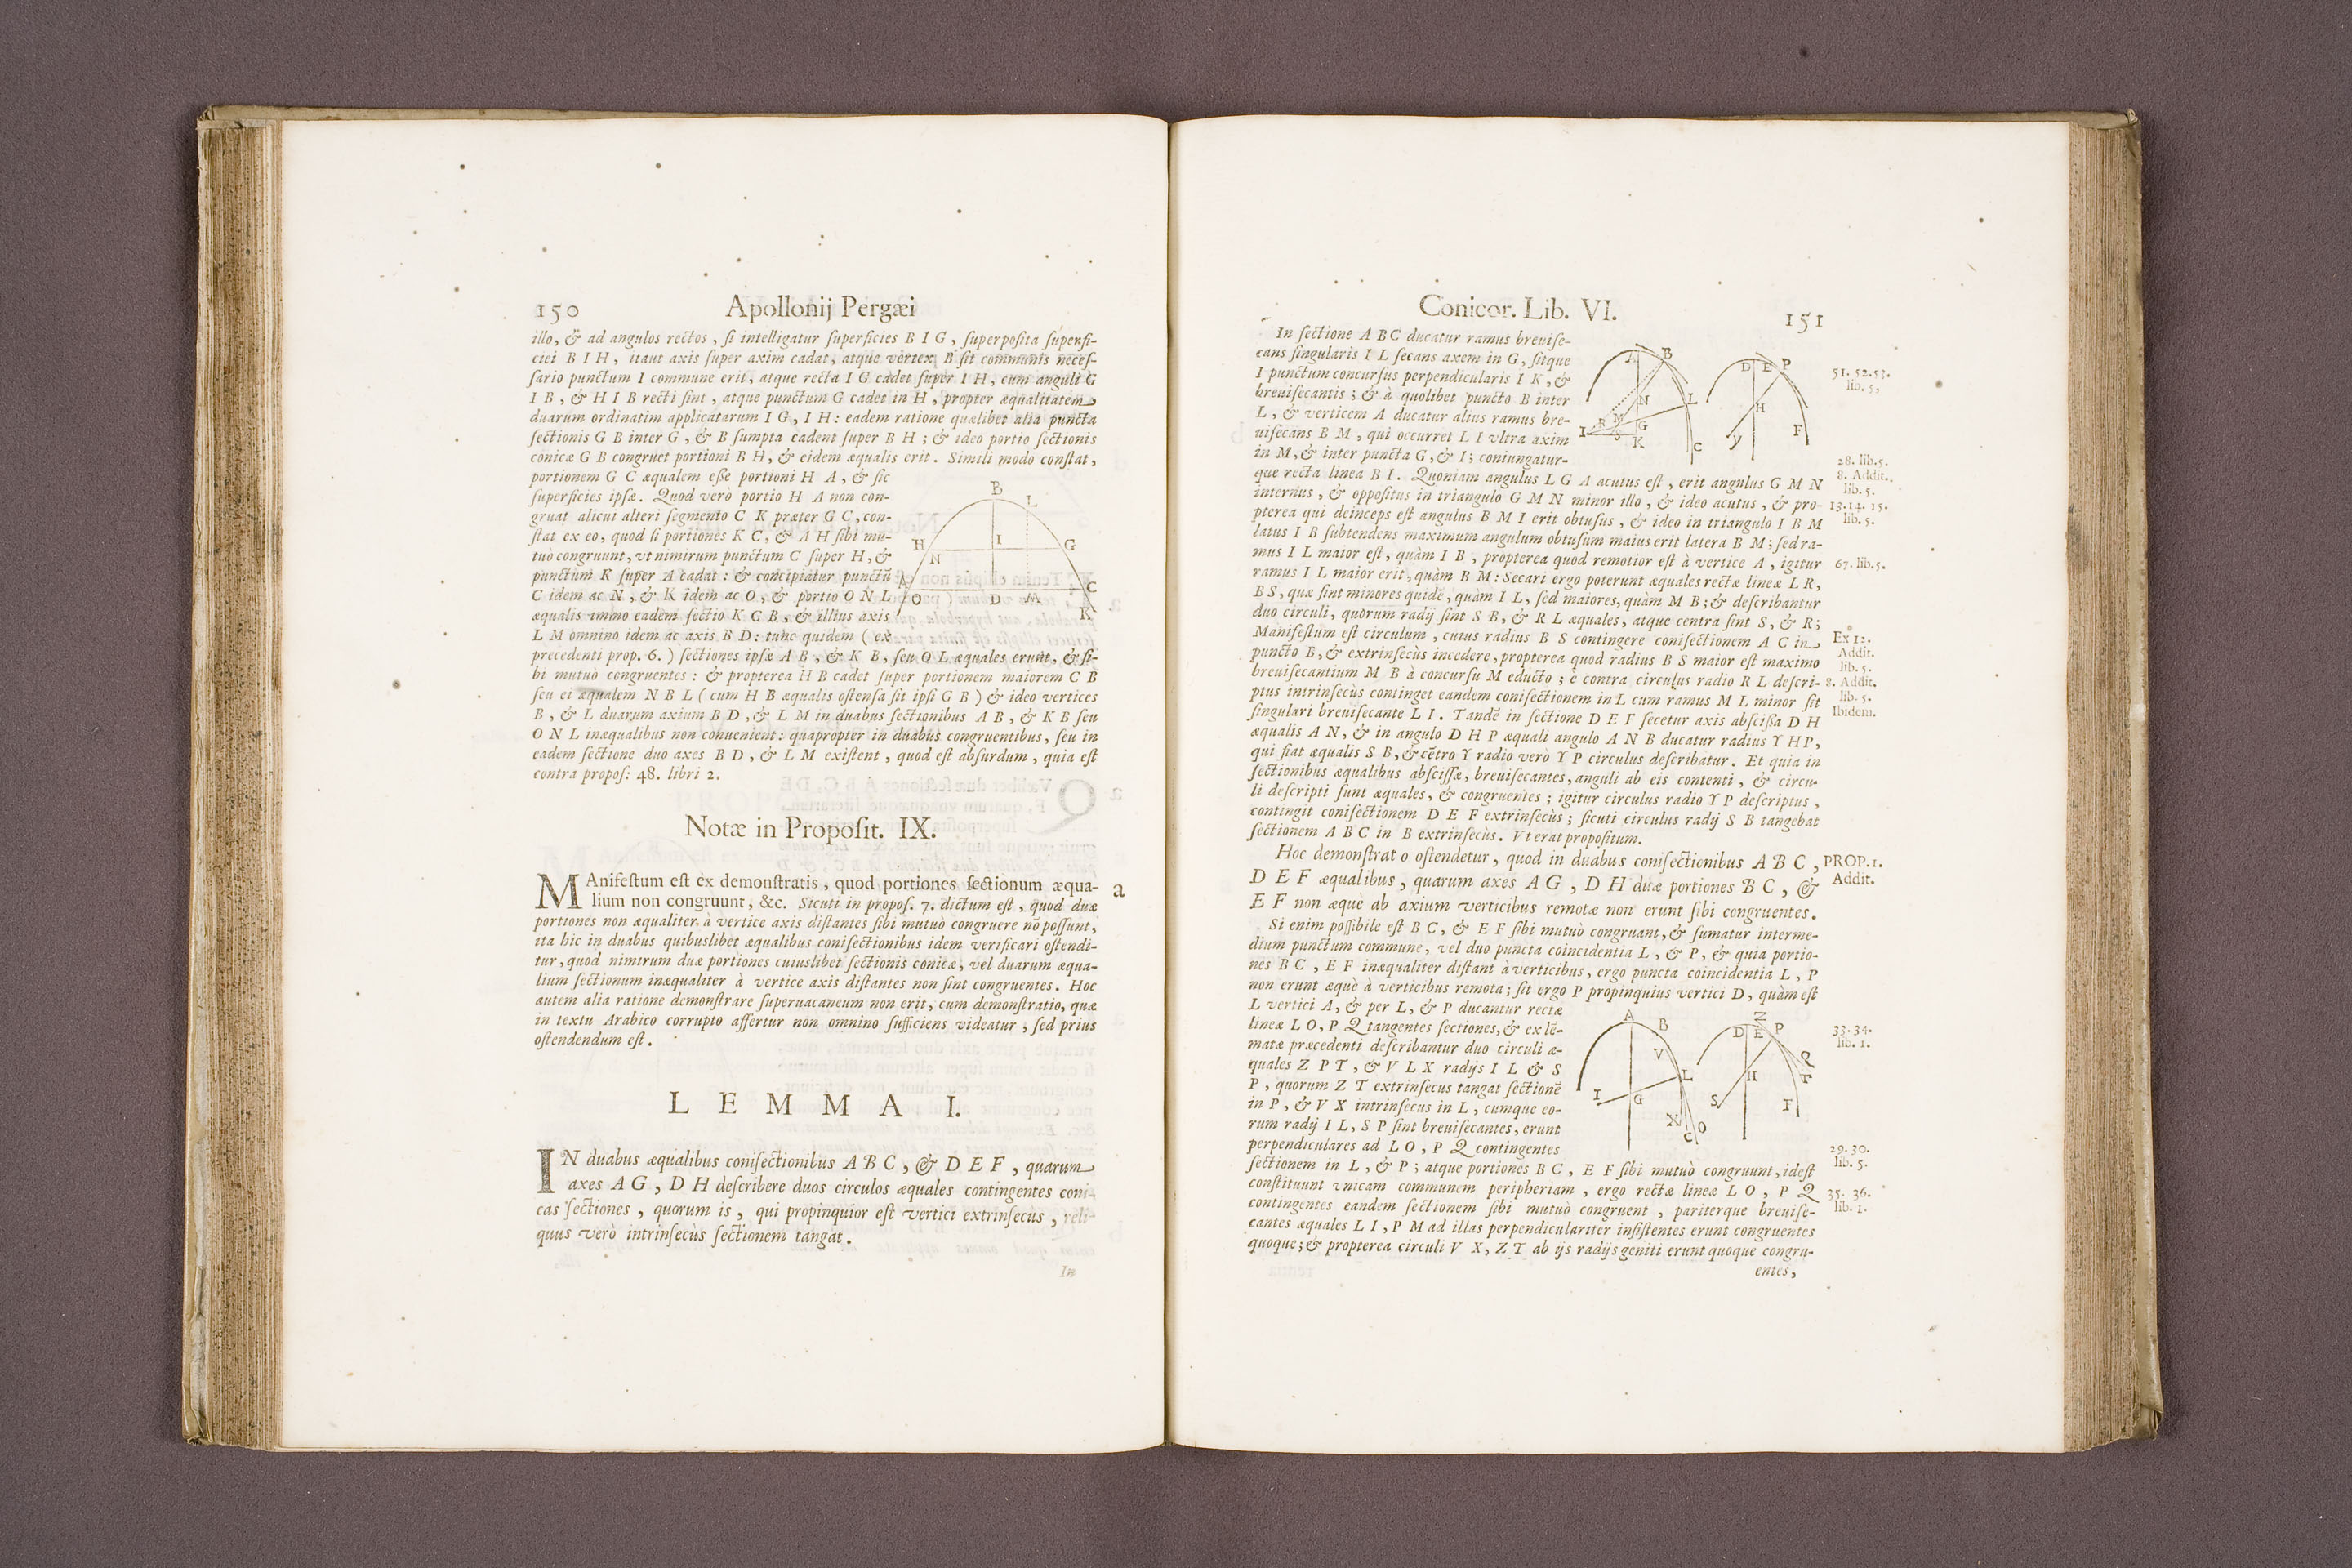 150
Apollonij Pergæi
illo, & ad angulos rectos, ſi intelligatur ſuperficies B I G, ſuperpoſita ſuperfi-
ciei B I H, itaut axis ſuper axim cadat, atque vertex B ſit communis neceſ-
ſario punctum I commune erit, atque recta I G cadet ſuper I H, cum anguli G
I B, & H I B recti ſint, atque punctum G cadet in H, propter æqualitatem
duarum ordinatim applicatarum I G, I H: eadem ratione quælibet alia puncta
ſectionis G B inter G, & B ſumpta cadent ſuper B H; & ideo portio ſectionis
conicæ G B congruet portioni B H, & eidem æqualis erit. Simili modo conſtat,
portionem G C æqualem eſſe portioni H A, & ſic
ſuperficies ipſæ. Quod verò portio H A non con-
gruat alicui alteri ſegmento C K præter G C, con-
ſtat ex eo, quod ſi portiones K C, & A H ſibi mu-
tuò congruunt, vt nimirum punctum C ſuper H, &
punctum K ſuper A cadat: & concipiatur punctũ
C idem ac N, & K idem ac O, & portio O N L
æqualis immo eadem ſectio K C B, & illius axis
L M omnino idem ac axis B D: tunc quidem (ex
precedenti prop. 6.) ſectiones ipſæ A B, & K B, ſeu O L æquales erunt, & ſi-
bi mutuò congruentes: & propterea H B cadet ſuper portionem maiorem C B
ſeu ei æqualem N B L (cum H B æqualis oſtenſa ſit ipſi G B) & ideo vertices
B, & L duarum axium B D, & L M in duabus ſectionibus A B, & K B ſeu
O N L inæqualibus non conuenient: quapropter in duabus congruentibus, ſeu in
eadem ſectione duo axes B D, & L M exiſtent, quod eſt abſurdum, quia eſt
contra propoſ: 48. libri 2.
B
L
H
N
I
G
A
O
D
M
C
K
Notæ in Propoſit. IX.
MAnifeſtum eſt ex demonſtratis, quod portiones ſectionum æqua-
lium non congruunt, &c. Sicuti in propoſ. 7. dictum eſt, quod duæ
portiones non æqualiter à vertice axis diſtantes ſibi mutuò congruere nõ poſſunt,
ita hic in duabus quibuslibet æqualibus coniſectionibus idem verificari oſtendi-
tur, quod nimirum duæ portiones cuiuslibet ſectionis conicæ, vel duarum æqua-
lium ſectionum inæqualiter à vertice axis diſtantes non ſint congruentes. Hoc
autem alia ratione demonſtrare ſuperuacaneum non erit, cum demonſtratio, quæ
in textu Arabico corrupto affertur non omnino ſufficiens videatur, ſed prius
oſtendendum eſt.
a
LEMMA I.
IN duabus æqualibus coniſectionibus A B C, & D E F, quarum
axes A G, D H deſcribere duos circulos æquales contingentes coni-
cas ſectiones, quorum is, qui propinquior eſt vertici extrinſecùs, reli-
quus verò intrinſecùs ſectionem tangat.
In
Conicor. Lib. VI.
151
In ſectione A B C ducatur ramus breuiſe-
cans ſingularis I L ſecans axem in G, ſitque
I punctum concurſus perpendicularis I K, &
breuiſecantis; & à quolibet puncto B inter
L, & verticem A ducatur alius ramus bre-
uiſecans B M, qui occurret L I vltra axim
in M, & inter puncta G, & I; coniungatur-
que recta linea B I. Quoniam angulus L G A acutus eſt, erit angulus G M N
internus, & oppoſitus in triangulo G M N minor illo, & ideo acutus, & pro-
pterea qui deinceps eſt angulus B M I erit obtuſus, & ideo in triangulo I B M
latus I B ſubtendens maximum angulum obtuſum maius erit latera B M; ſed ra-
mus I L maior eſt, quàm I B, propterea quod remotior eſt à vertice A, igitur
ramus I L maior erit, quàm B M: Secari ergo poterunt æquales rectæ lineæ L R,
B S, quæ ſint minores quidẽ, quàm I L, ſed maiores, quàm M B; & deſcribantur
duo circuli, quorum radij ſint S B, & R L æquales, atque centra ſint S, & R;
Manifeſtum eſt circulum, cuius radius B S contingere coniſectionem A C in
puncto B, & extrinſecùs incedere, propterea quod radius B S maior eſt maximo
breuiſecantium M B à concurſu M educto; è contra circulus radio R L deſcri-
ptus intrinſecùs continget eandem coniſectionem in L cum ramus M L minor ſit
ſingulari breuiſecante L I. Tandẽ in ſectione D E F ſecetur axis abſciſſa D H
æqualis A N, & in angulo D H P æquali angulo A N B ducatur radius Y H P,
qui fiat æqualis S B, & cẽtro Y radio verò Y P circulus deſcribatur. Et quia in
ſectionibus æqualibus abſciſſæ, breuiſecantes, anguli ab eis contenti, & circu-
li deſcripti ſunt æquales, & congruentes; igitur circulus radio Y P deſcriptus,
contingit coniſectionem D E F extrinſecùs; ſicuti circulus radij S B tangebat
ſectionem A B C in B extrinſecùs. Vt erat propoſitum.
A
B
N
L
M
R
G
I
S
K
C
D
E
P
H
Y
F
51. 52. 53.
lib. 5,
28. lib. 5.
8. Addit.
lib. 5.
13. 14. 15.
lib. 5.
67. lib. 5.
Ex 12.
Addit.
lib. 5.
8. Addit.
lib. 5.
Ibidem.
Hoc demonſtrato oſtendetur, quod in duabus coniſectionibus A B C,
D E F æqualibus, quarum axes A G, D H duæ portiones B C, &
E F non æquè ab axium verticibus remotæ non erunt ſibi congruentes.
PROP. 1.
Addit.
Si enim poſſibile eſt B C, & E F ſibi mutuò congruant, & ſumatur interme-
dium punctum commune, vel duo puncta coincidentia L, & P, & quia portio-
nes B C, E F inæqualiter diſtant à verticibus, ergo puncta coincidentia L, P
non erunt æquè à verticibus remota; ſit ergo P propinquius vertici D, quàm eſt
L vertici A, & per L, & P ducantur rectæ
lineæ L O, P Q tangentes ſectiones, & ex lẽ-
matæ præcedenti deſcribantur duo circuli æ-
quales Z P T, & V L X radijs I L & S
P, quorum Z T extrinſecus tangat ſectionẽ
in P, & V X intrinſecus in L, cumque eo-
rum radij I L, S P ſint breuiſecantes, erunt
perpendiculares ad L O, P Q contingentes
ſectionem in L, & P; atque portiones B C, E F ſibi mutuò congruunt, ideſt
conſtituunt vnicam communem peripheriam, ergo rectæ lineæ L O, P Q
contingentes eandem ſectionem ſibi mutuò congruent, pariterque breuiſe-
cantes æquales L I, P M ad illas perpendiculariter inſiſtentes erunt congruentes
quoque; & propterea circuli V X, Z T ab ijs radijs geniti erunt quoque congru-
entes,
A
B
V
L
I
G
X
C
O
Z
D
E
P
Q
T
H
S
F
33. 34.
lib. 1.
29. 30.
lib. 5.
35. 36.
lib. 1.